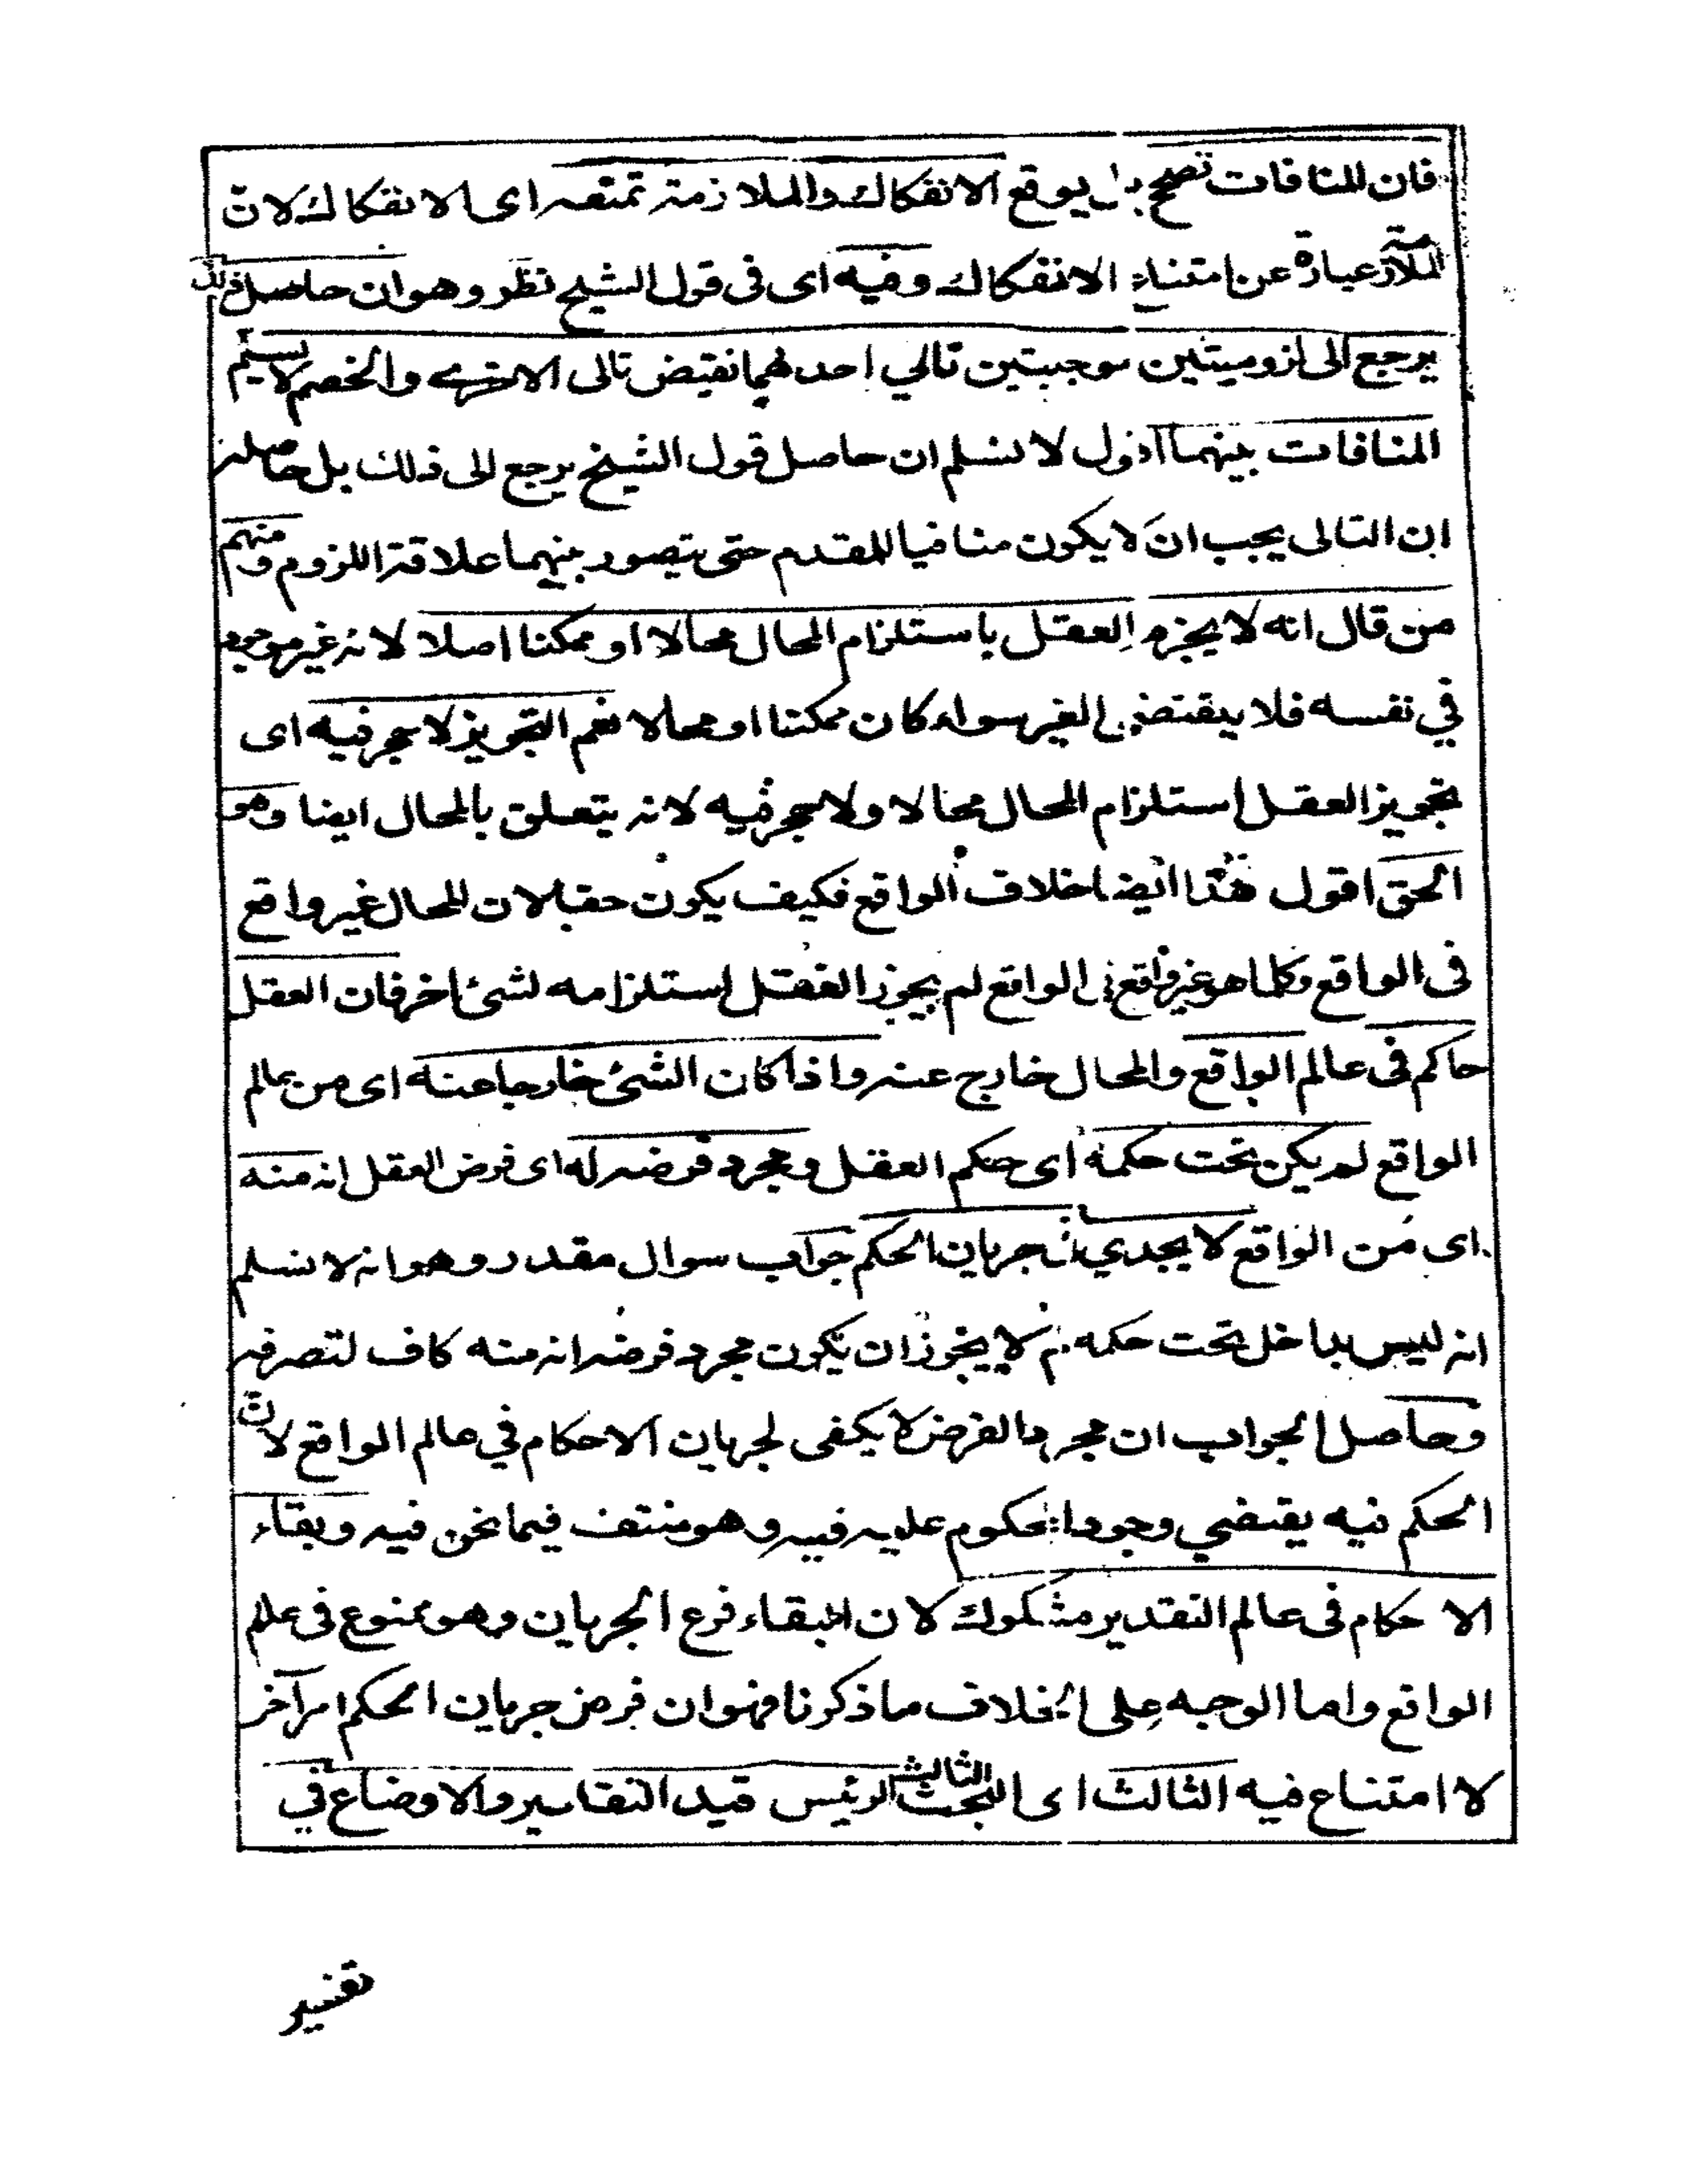 فان المنافات تصحح بل يوقع الانفكاك والملازمة تمنعه اى الانفكاك لان
الملازمة عبارة عن امتناع الانفكاك وفيه اى فى قول الشيخ نظر وهوان حاصل ذلك
يرجع الى لزوميتين موجبتين تالي احدهما نقيض تالى الاخرى والخصم لا يسلم
المنافات بينهما اقول لا نسلم ان حاصل قول الشيخ يرجع الى ذلك بل حاصله
ان التالى يجب ان لا يكون منافيا للمقدم حتى يتصور بينهما علاقة اللزوم ومنهم
من قال انه لا يجزم العقل باستلزام المحال محالا او ممكنا اصلا لانه غير موجود
في نفسه فلا يقتضى الغير سواء كان ممكنا او محالا نعم التجويز لا حجر فيه اى
تجويز العقل استلزام المحال محالا ولا حجر فيه لانه يتعلق بالمحال ايضا وهو
الحق اقول هذا ايضا خلاف الواقع فكيف يكون حقا لان المحال غير واقع
فى الواقع وكلما هو غير واقع فى الواقع لم يجوز العقل استلزامه لشئ اخر فان العقل
حاكم فى عالم الواقع والمحال خارج عنه واذا كان الشئ خارجا عنه اى من عالم
الواقع لم يكن تحت حكمه اى حكم العقل ومجرد فرضه له اى فرض العقل انه منه
اى من الواقع لا يجدي فى جريان الحكم جواب سوال مقدر وهو انه لا نسلم
انه ليس بداخل تحت حكمه لم لا يجوز ان يكون مجرد فرضه انه منه كاف لتصرفه
وحاصل الجواب ان مجرد الفرض لا يكفى لجريان الاحكام في عالم الواقع لان
الحكم فيه يقتضي وجود المحكوم عليه فيه وهو منتف فيما نحن فيه وبقاء
الاحكام فى عالم التقدير مشكوك لان البقاء فرع الجريان وهو ممنوع فى عالم
الواقع واما الوجه على الخلاف ما ذكرنا فهوان فرض جريان الحكم امر آخر
لا امتناع فيه الثالث اى البحث الثالث الرئيس قيد التقاسير والاوضاع في
تفسير